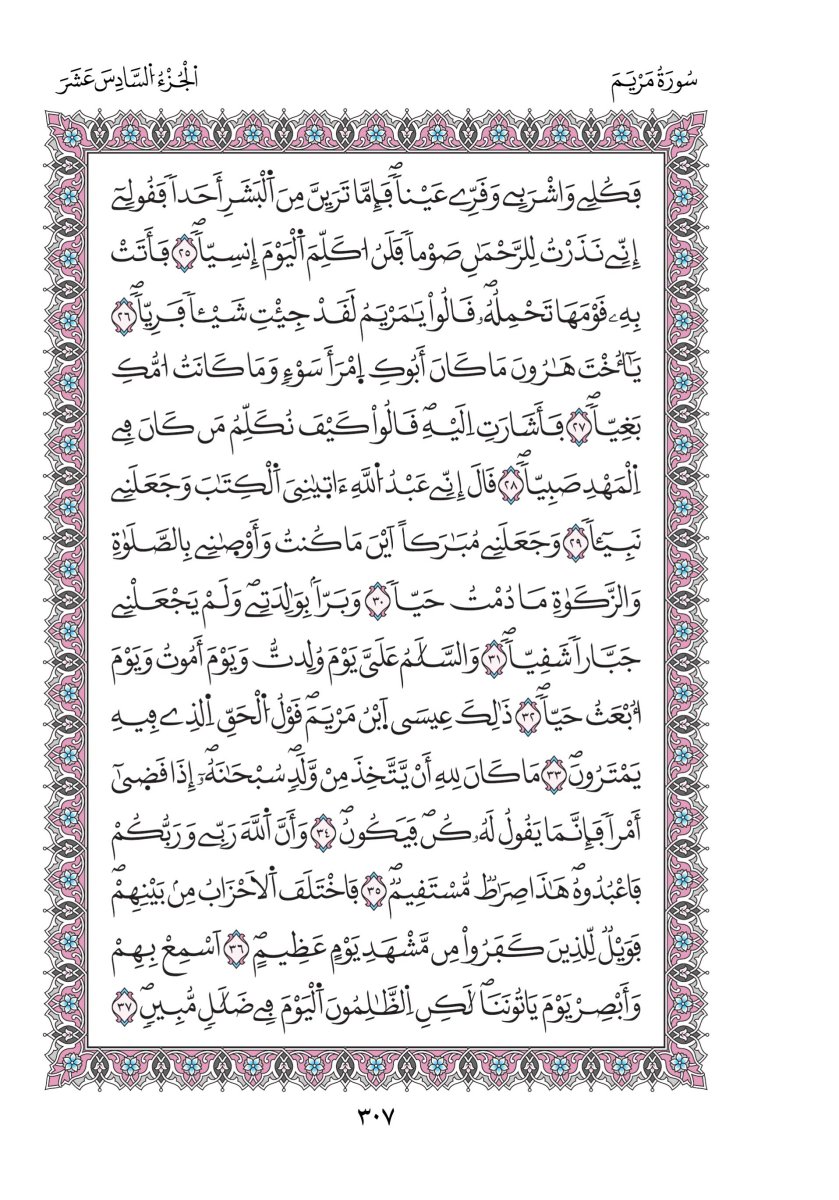 سُورَةُ مَرْيَمَ
اَلْجُزْءُ السَّادِسَ عَشَرَ
فَكُلِے وَاشْرَبِے وَقَرِّے عَيْناٗۖ فَإِمَّا تَرَيِنَّ مِنَ اَ۬لْبَشَرِ أَحَداٗ فَقُولِےٓ
إِنِّے نَذَرْتُ لِلرَّحْمَٰنِ صَوْماٗ فَلَنُ ا۟كَلِّمَ اَ۬لْيَوْمَ إِنسِيّاٗۖ ٢٥ فَأَتَتْ
بِهِۦ قَوْمَهَا تَحْمِلُهُۥۖ قَالُواْ يَٰمَرْيَمُ لَقَدْ جِئْتِ شَيْـٔاٗ فَرِيّاٗۖ ٢٦
يَٰٓأُخْتَ هَٰرُونَ مَا كَانَ أَبُوكِ اِ۪مْرَأَ سَوْءٖ وَمَا كَانَتُ ا۟مُّكِ
بَغِيّاٗۖ ٢٧ فَأَشَارَتِ اِلَيْهِۖ قَالُواْ كَيْفَ نُكَلِّمُ مَن كَانَ فِے
اِ۬لْمَهْدِ صَبِيّاٗۖ ٢٨ قَالَ إِنِّے عَبْدُ اُ۬للَّهِ ءَاتۭيٰنِيَ اَ۬لْكِتَٰبَ وَجَعَلَنِے
نَبِيٓـٔاٗ ٢٩ وَجَعَلَنِے مُبَٰرَكاً اَيْنَ مَا كُنتُ وَأَوْصۭيٰنِے بِالصَّلَوٰةِ
وَالزَّكَوٰةِ مَا دُمْتُ حَيّاٗ ٣٠ وَبَرّاَۢ بِوَٰلِدَتِےۖ وَلَمْ يَجْعَلْنِے
جَبَّاراٗ شَقِيّاٗۖ ٣١ وَالسَّلَٰمُ عَلَيَّ يَوْمَ وُلِدتُّ وَيَوْمَ أَمُوتُ وَيَوْمَ
أُبْعَثُ حَيّاٗۖ ٣٢ ذَٰلِكَ عِيسَي اَ۪بْنُ مَرْيَمَۖ قَوْلُ اُ۬لْحَقِّ اِ۬لذِے فِيهِ
يَمْتَرُونَۖ ٣٣ مَا كَانَ لِلهِ أَنْ يَّتَّخِذَ مِنْ وَّلَدٖۖ سُبْحَٰنَهُۥٓۖ إِذَا قَض۪يٰٓ
أَمْراٗ فَإِنَّمَا يَقُولُ لَهُۥ كُنۖ فَيَكُونُۖ ٣٤ وَأَنَّ اَ۬للَّهَ رَبِّے وَرَبُّكُمْ
فَاعْبُدُوهُۖ هَٰذَا صِرَٰطٞ مُّسْتَقِيمٞۖ ٣٥ فَاخْتَلَفَ اَ۬لَاحْزَابُ مِنۢ بَيْنِهِمْۖ
فَوَيْلٞ لِّلذِينَ كَفَرُواْ مِن مَّشْهَدِ يَوْمٍ عَظِيمٍۖ ٣٦ اَسْمِعْ بِهِمْ
وَأَبْصِرْ يَوْمَ يَاتُونَنَاۖ لَٰكِنِ اِ۬لظَّٰلِمُونَ اَ۬لْيَوْمَ فِے ضَلَٰلٖ مُّبِينٖۖ ٣٧
٣٠٧